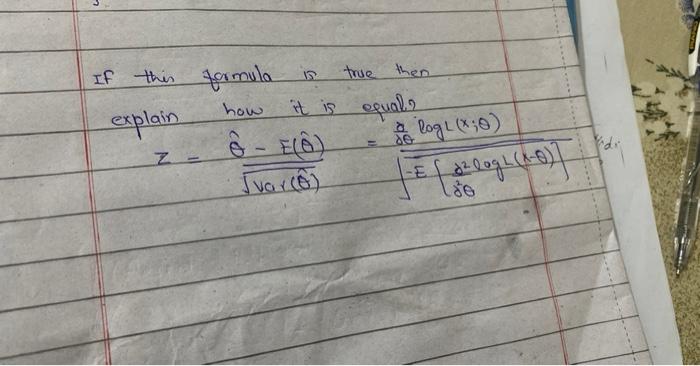 If this formula is true then
explain how it is equal?
Z = θ̂ - E(θ̂) / √var(θ̂) = ∂/∂θ log L(x;θ) / √-E[∂² log L(x-θ) / ∂²θ]